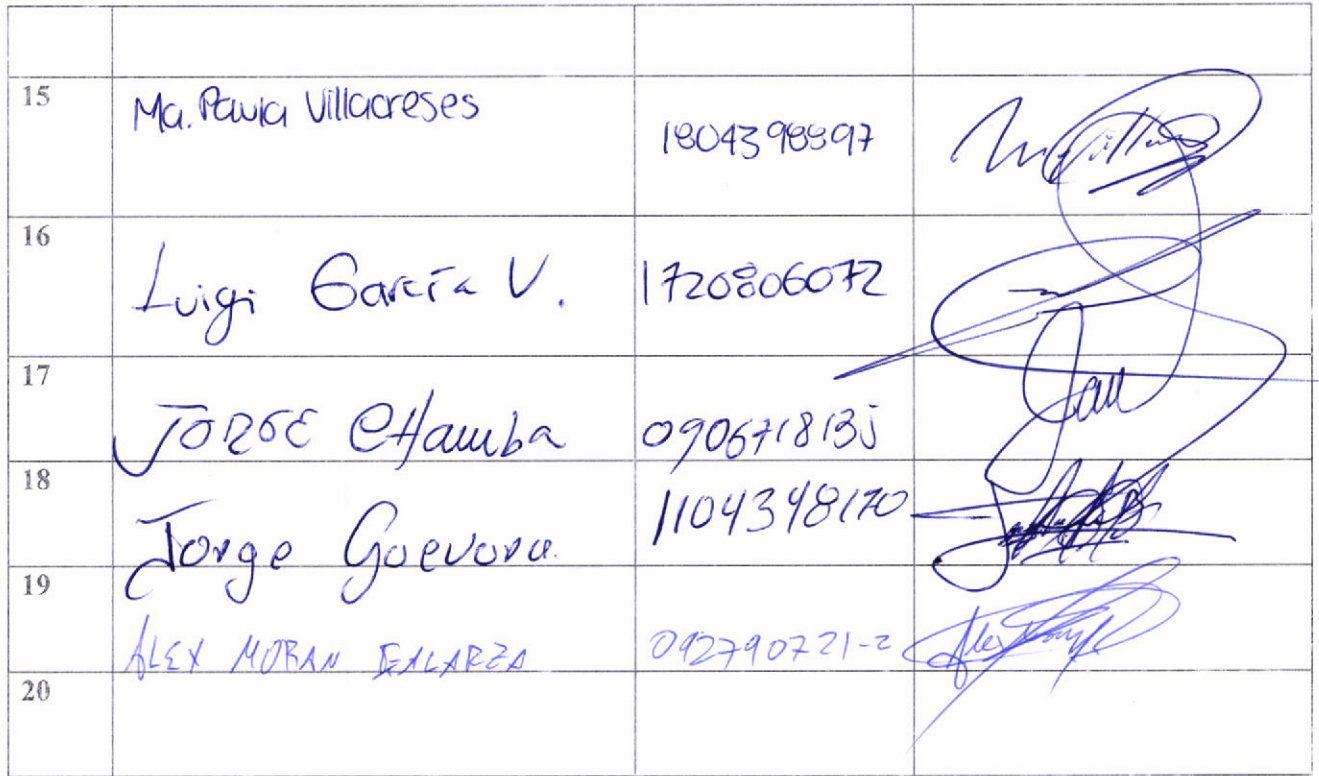 15 Ma. Paula Villacreses 1804398897
16 Luigi García V. 1720806072
17 JORGE CHamba
18 Jorge Guevara. 1104348170
19 ALEX MORAN GALARZA 092790721-2
20